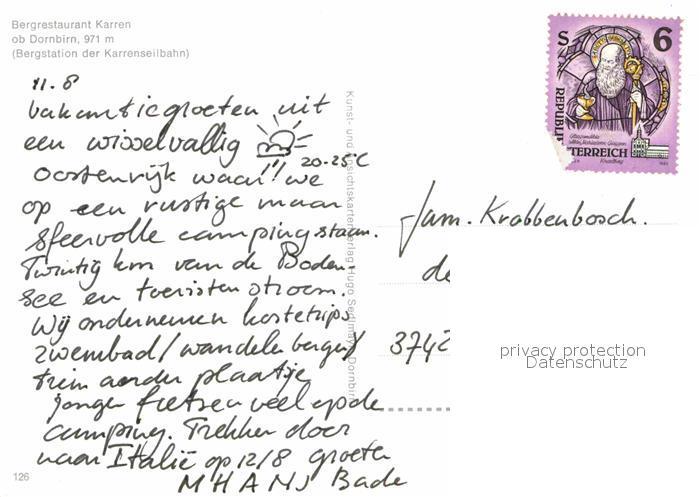 Bergrestaurant Karren
ob Dornbirn, 971 m
(Bergstation der Karrenseilbahn)
11.8
vakantiegroeten uit
een wisselvallig
20-25°C
Oostenrijk waar!! we
op een rustige maar
sfeervolle camping staan.
Twintig km van de Boden-
see en toeristen stroom.
Wij ondernemen kostetrips
zwembad/wandelen bergen/
trein ander plaatsje
jongens fietsen veel op de
camping. Trekken door
naar Italië op 12/8 groeten
M H A N J Bade
126
Kunst- und Ansichtskartenverlag Hugo Sedlmayr, Dornbirn
S 6
REPUBLIK
ÖSTERREICH
Fam. Krabbenbosch.
de
3742
privacy protection
Datenschutz